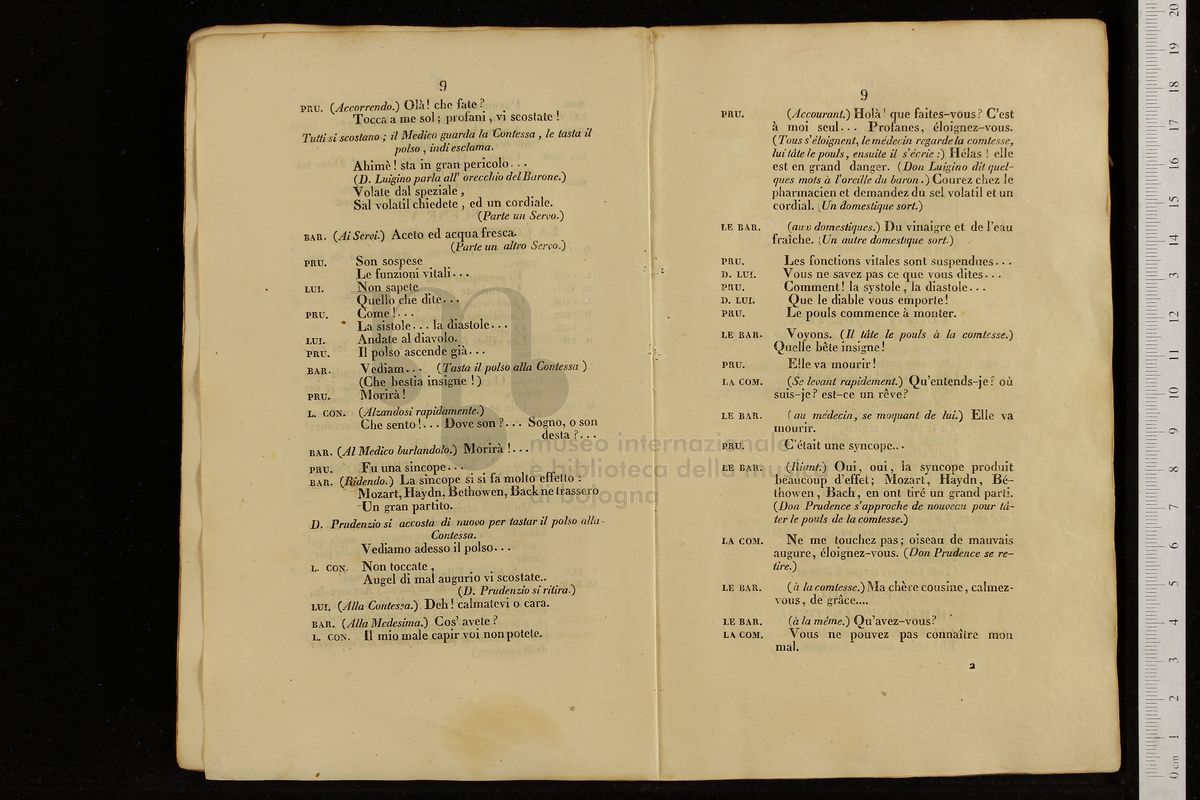 9
PRU. (Accorrendo.) Olà! che fate?
Tocca a me sol; profani, vi scostate!
Tutti si scostano; il Medico guarda la Contessa, le tasta il
polso, indi esclama.
Ahimè! sta in gran pericolo...
(D. Luigino parla all' orecchio del Barone.)
Volate dal speziale,
Sal volatil chiedete, ed un cordiale.
(Parte un Servo.)
BAR. (Ai Servi.) Aceto ed acqua fresca.
(Parte un altro Servo.)
PRU. Son sospese
Le funzioni vitali...
LUI. Non sapete
Quello che dite...
PRU. Come!...
La sistole... la diastole...
LUI. Andate al diavolo.
PRU. Il polso ascende già...
BAR. Vediam... (Tasta il polso alla Contessa)
(Che bestia insigne!)
PRU. Morirà!
L. CON. (Alzandosi rapidamente.)
Che sento!... Dove son?... Sogno, o son
desta?...
BAR. (Al Medico burlandolo.) Morirà!...
PRU. Fu una sincope...
BAR. (Ridendo.) La sincope si si fa molto effetto:
Mozart, Haydn, Bethowen, Back ne trassero
Un gran partito.
D. Prudenzio si accosta di nuovo per tastar il polso alla
Contessa.
Vediamo adesso il polso...
L. CON. Non toccate,
Augel di mal augurio vi scostate..
(D. Prudenzio si ritira.)
LUI. (Alla Contessa.) Deh! calmatevi o cara.
BAR. (Alla Medesima.) Cos' avete?
L. CON. Il mio male capir voi non potete.
9
PRU. (Accourant.) Holà! que faites-vous? C'est
à moi seul... Profanes, éloignez-vous.
(Tous s'éloignent, le médecin regarde la comtesse,
lui tâte le pouls, ensuite il s'écrie:) Hélas! elle
est en grand danger. (Don Luigino dit quel-
ques mots à l'oreille du baron.) Courez chez le
pharmacien et demandez du sel volatil et un
cordial. (Un domestique sort.)
LE BAR. (aux domestiques.) Du vinaigre et de l'eau
fraîche. (Un autre domestique sort.)
PRU. Les fonctions vitales sont suspendues...
D. LUI. Vous ne savez pas ce que vous dites...
PRU. Comment! la systole, la diastole...
D. LUI. Que le diable vous emporte!
PRU. Le pouls commence à monter.
LE BAR. Voyons. (Il tâte le pouls à la comtesse.)
Quelle bête insigne!
PRU. Elle va mourir!
LA COM. (Se levant rapidement.) Qu'entends-je? où
suis-je? est-ce un rêve?
LE BAR. (au médecin, se moquant de lui.) Elle va
mourir.
PRU. C'était une syncope...
LE BAR. (Riant.) Oui, oui, la syncope produit
beaucoup d'effet; Mozart, Haydn, Bé-
thowen, Bach, en ont tiré un grand parti.
(Don Prudence s'approche de nouveau pour tâ-
ter le pouls de la comtesse.)
LA COM. Ne me touchez pas; oiseau de mauvais
augure, éloignez-vous. (Don Prudence se re-
tire.)
LE BAR. (à la comtesse.) Ma chère cousine, calmez-
vous, de grâce....
LE BAR. (à la même.) Qu'avez-vous?
LA COM. Vous ne pouvez pas connaître mon
mal.
2
museo internazionale
e biblioteca della musica
di bologna
0 cm 1 2 3 4 5 6 7 8 9 10 11 12 13 14 15 16 17 18 19 20